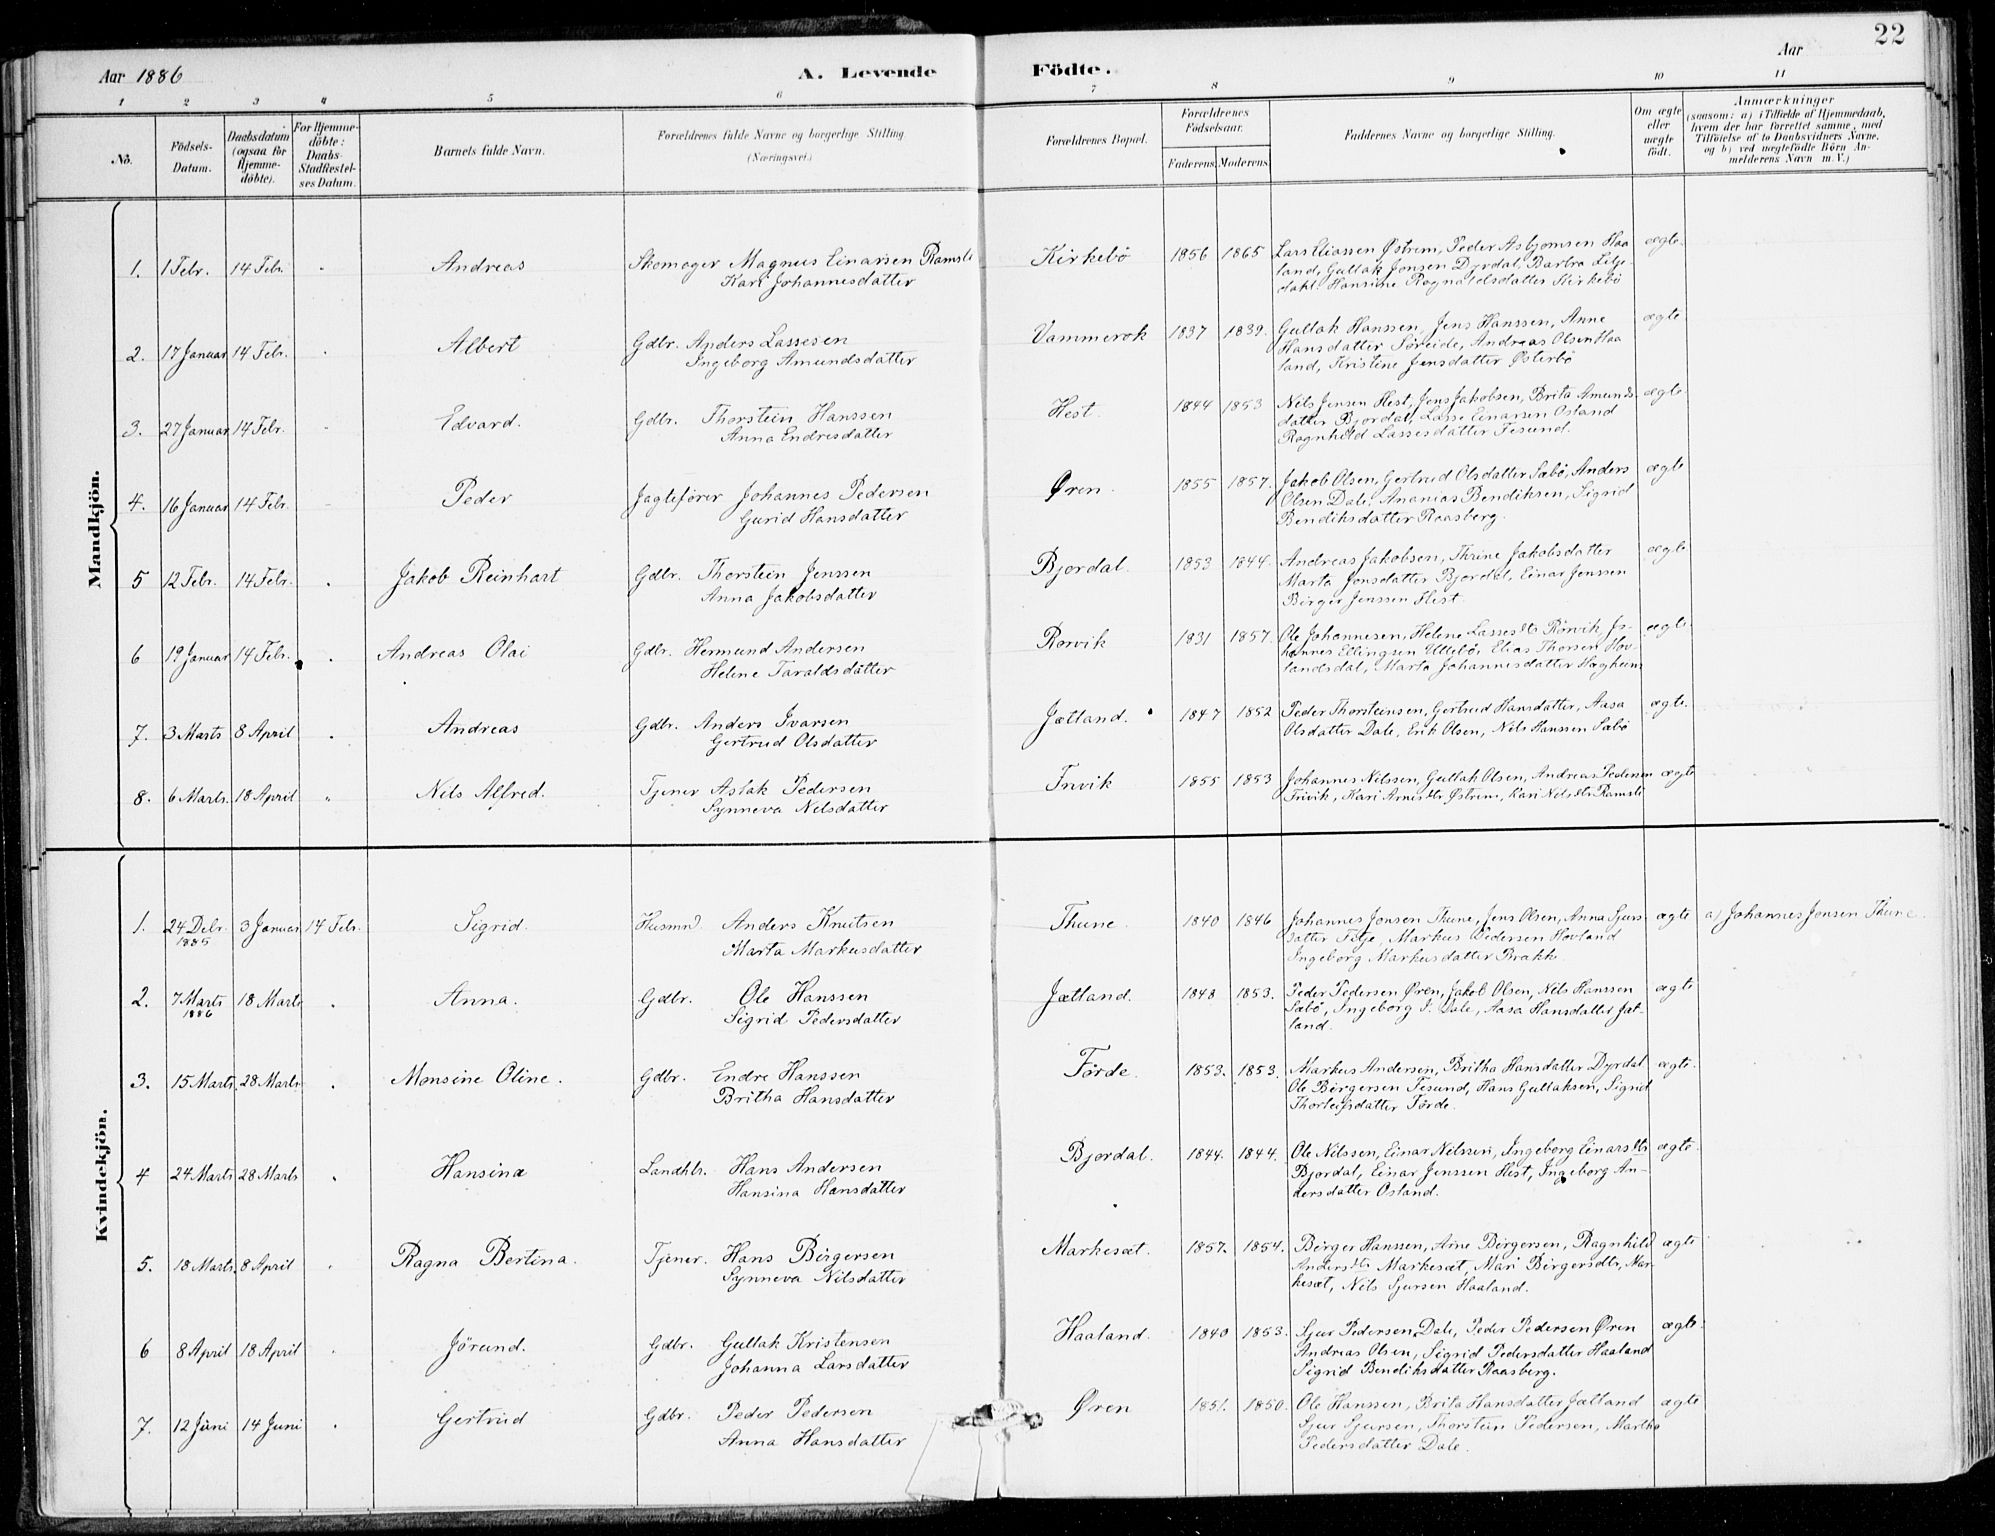 Aar 1886
A. Levende
Födte.
Aar
22
1 2 3 4 5 6 7 8 9 10 11
No.
Födsels-
Datum.
Daabsdatum
(ogsaa for
Hjemme-
döbte).
For Hjemme-
döbte:
Daabs-
Stadfæstel-
ses Datum.
Barnets fulde Navn.
Forældrenes fulde Navne og borgerlige Stilling.
(Næringsvei.)
Forældrenes Bopæl.
Forældrenes
Födselsaar.
Faderens. Moderens.
Faddernes Navne og borgerlige Stilling.
Om ægte
eller
uægte
födt.
Anmærkninger
(saasom: a) i Tilfælde af Hjemmedaab,
hvem der har forrettet samme, med
Tilföielse af to Daabsvidners Navne,
og b) ved uægtefödte Börn An-
melderens Navn m.V.)
Mandkjön.
1. 1 Febr. 14 Febr. Andreas Skomager Magnus Einarsen Ramsli Kirkebö 1856 1865 Lars Eliassen Østrem, Peder Asbjornsen Haa ægte.
Kari Johannesdatter land, Gullak Jonsen Dyrdal, Barbra Litle
dahl. Hansine Ragnaldsdatter Kirkebö
2. 17 Januar 14 Febr. Albert Gdbr. Anders Lassesen Vammerok 1837 1839. Gullak Hanssen, Jens Hanssen, Anne ægte
Ingeborg Amundsdatter Hansdatter Söreide, Andreas Olsen Haa
land, Kristine Jensdatter Østerbö
3. 27 Januar 14 Febr. Edvard. Gdbr. Thorstein Hanssen Hest. 1844 1853 Nils Jensen Hest, Jens Jakobsen, Brita Amunds- ægte
Anna Endresdatter datter Bjordal, Lasse Einarsen Osland
Ragnhild Lassesdatter Tesund.
4. 16 Januar 14 Febr. Peder Jagtefører Johannes Pedersen Øren. 1855 1857. Jakob Olsen, Gertrud Olsdatter Sæbö, Anders ægte
Gurid Hansdatter Olsen Dale, Ananias Bendiksen, Sigrid
Bendiksdatter Raasberg.
5 12 Febr. 14 Febr. Jakob Reinhart Gdbr. Thorstein Jenssen Bjordal. 1853 1844. Andreas Jakobsen, Thrine Jakobsdatter ægte
Anna Jakobsdatter Marta Jonsdatter Bjordal, Einar Jenssen
Birger Jenssen Hest.
6 19 Januar 14 Febr. Andreas Olai Gdbr. Hermund Andersen Rorvik 1831 1857. Ole Johannesen, Helene Lassesdtr Rörvik, Jo- ægte.
Helene Taraldsdatter hannes Ellingsen Ullebö, Elias Thorsen Hov-
landsdal, Marta Johannesdatter Hægheim
7. 3 Marts 8 April Andreas Gdbr. Anders Ivarsen Jætland. 1847 1852 Peder Thorsteinsen, Gertrud Hansdatter, Aasa ægte.
Gertrud Olsdatter Olsdatter Dale, Erik Olsen, Nils Hanssen Sæbö
8. 6 Marts. 18 April " Nils Alfred. Tjener Aslak Pedersen Trivik 1855 1853 Johannes Nilssen, Gullak Olsen, Andreas Pedersen ægte
Synneva Nilsdatter Trivik, Kari Arnesdtr Østrem, Kari Nilsdtr Ramsli
Kvindekjön.
1. 24 Debr. 3 Januar 14 Febr. Sigrid. Husmd. Anders Knutsen Thune. 1840 1846 Johannes Jonsen Thune, Jens Olsen, Anna Sjurs- ægte a) Johannes Jonsen Thune.
1885 Marta Markusdatter datter Fetje, Markus Pedersen Hovland
Ingeborg Markusdatter Brakke.
2. 7 Marts 18 Marts Anna. Gdbr. Ole Hanssen Jætland. 1848 1853. Peder Pedersen Øren, Jakob Olsen, Nils Hanssen ægte
1886 Sigrid Pedersdatter Sæbö, Ingeborg J. Dale, Aasa Hansdatter Jæt-
land.
3. 15 Marts. 28 Marts Monsine Oline. Gdbr. Endre Hanssen Förde. 1853. 1853. Markus Andersen, Britha Hansdatter Dyrdal ægte.
Britha Hansdatter Ole Börgersen Tesund, Hans Gullaksen, Sigrid
Thorleifsdatter Förde.
4 24 Marts 28 Marts Hansina Landhb. Hans Andersen Bjordal. 1844. 1844. Ole Nilssen, Einar Nilssen, Ingeborg Einarsdtr ægte.
Hansina Hansdatter Bjordal, Einar Jenssen Hest, Ingeborg An-
dersdatter Osland.
5. 18 Marts. 8 April Ragna Bertina. Tjener. Hans Börgersen Markesæt. 1857. 1854. Börger Hanssen, Arne Börgersen, Ragnhild ægte
Synneva Nilsdatter Andersdtr Markesæt, Mari Börgersdtr, Mar-
kesæt, Nils Sjursen Haaland.
6 8 April 18 April Jörund. Gdbr. Gullak Kristensen Haaland. 1840 1853. Sjur Pedersen Dale, Peder Pedersen Øren ægte.
Johanna Larsdatter Andreas Olsen, Sigrid Pedersdatter Haaland
Sigrid Bendiksdatter Raasberg.
7. 12 Juni 14 Juni Gertrud Gdbr. Peder Pedersen Øren 1851. 1850. Ole Hanssen, Brita Hansdatter Jætland ægte
Anna Hansdatter Sjur Sjursen, Thorstein Pedersen, Martha
Pedersdatter Dale.